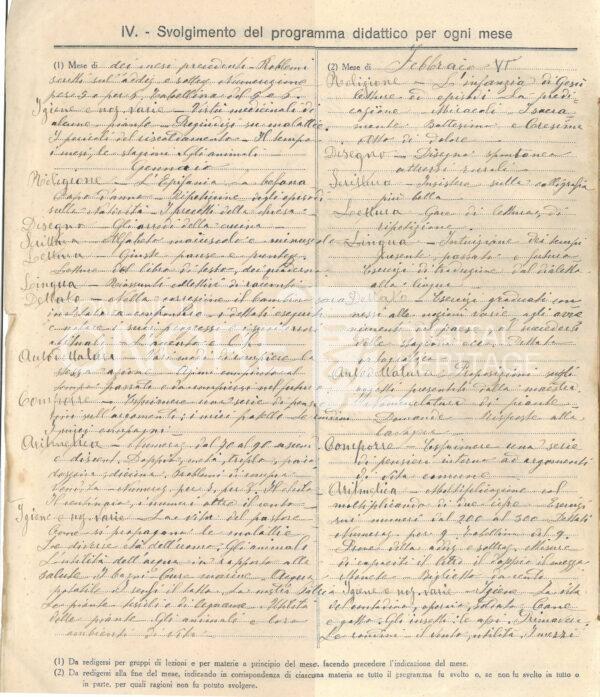 IV. - Svolgimento del programma didattico per ogni mese
(1) Mese di dei mesi precedenti - Problemi
scritti sull'addiz. e sottraz. Numerazione
per 5 e per 6. Tabelline del 5 e 6.
Igiene e noz. varie - Virtù medicinali di
alcune piante. Pregiudizi su malattie.
I pericoli del riscaldamento - Il tempo
i mesi, le stagioni - Gli animali -
Gennaio
Religione - L'Epifania - La befana
Capo d'anno - Ripetizione degli episodi
sulla natività - I precetti della chiesa -
Disegno - Gli arredi della cucina -
Scrittura - Alfabeto maiuscolo e minuscolo
Lettura - Giuste pause e punteg.
Letture del libro di testo, dei quaderni
Lingua - Riassunti collettivi di racconti
Dettato - Nella correzione il bambino sarà
i dettati eseguiti
e notare i suoi progressi e i suoi errori
Autodettatura -
stessa azione - Azioni compiute al
tempo passato e da compiersi nel futuro
Comporre - Esprimere una serie di pensie
rini sull'argomento: i miei fratelli
I miei compagni -
Aritmetica - Numeraz. dal 70 al 90 ascend.
e discend. Doppio, metà, triplo, paio
dozzina, decina. Problemi di compra
vendita. Numeraz. per 7, per 8.
Il centinaio, i numeri oltre il cento -
Igiene e noz. varie - La vita del pastore
Come si propagano le malattie
Le diverse età dell'uomo. Gli animali
L'utilità dell'acqua in rapporto alla
salute. I bagni. Cure marine. Acqua
potabile. I sensi il tatto. La nostra Patria
Le piante tessili e di legname. Utilità
delle piante. Gli animali e loro
ambienti di vita
(2) Mese di Febbraio VI
Religione - L'infanzia di Gesù
Letture di episodi - La predi-
cazione - Miracoli - I sacra-
menti: Battesimo e Cresima
Atto di dolore
Disegno - Disegno spontaneo
attrezzi rurali -
Scrittura - Insistere sulla calligrafia
più bella -
Lettura - Gare di lettura, di
ripetizione -
Lingua - Intuizione dei tempi
presente, passato e futuro
Esercizi di traduzione dal dialetto
alla lingua -
Dettato - Esercizi graduati con-
nessi alle nozioni varie, agli avve-
nimenti del paese, al succedersi
delle stagioni ecc. Dettato
ortografico
Autodettatura - Proposizioni sugli
oggetti presentati dalla maestra
Nomenclatura di piante -
Domande - Risposte alla
lavagna
Comporre - Esprimere una serie
di pensieri intorno ad argomenti
di vita comune
Aritmetica - Moltiplicazione col
moltiplicando di due cifre. Esercizi
sui numeri dal 200 al 300. Dettati
Numeraz. per 9. Tabellina del 9.
Prove della addiz. e sottraz. Misure
di capacità il litro il doppio il mezzo
Monete Biglietto da cento.
Igiene e noz. varie - Igiene - La vita
del contadino, operaio, soldato. Cane
e gatto. Gli insetti: le api. Primavera.
Le rondini il vento, utilità,
(1) Da redigersi per gruppi di lezioni e per materie a principio del mese, facendo precedere l'indicazione del mese.
(2) Da redigersi alla fine del mese, indicando in corrispondenza di ciascuna materia se tutto il programma fu svolto o, se non fu svolto in tutto o
in parte, per quali ragioni non fu potuto svolgere.